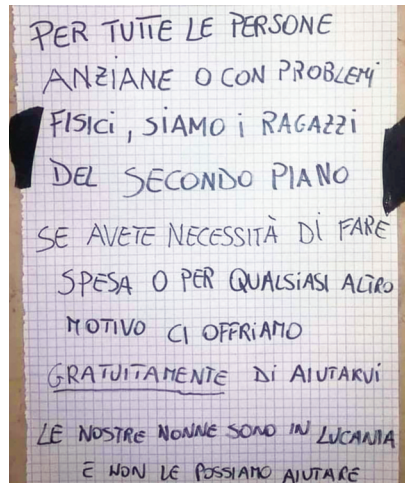 PER TUTTE LE PERSONE
ANZIANE O CON PROBLEMI
FISICI, SIAMO I RAGAZZI
DEL SECONDO PIANO
SE AVETE NECESSITÀ DI FARE
SPESA O PER QUALSIASI ALTRO
MOTIVO CI OFFRIAMO
GRATUITAMENTE DI AIUTARVI
LE NOSTRE NONNE SONO IN LUCANIA
E NON LE POSSIAMO AIUTARE